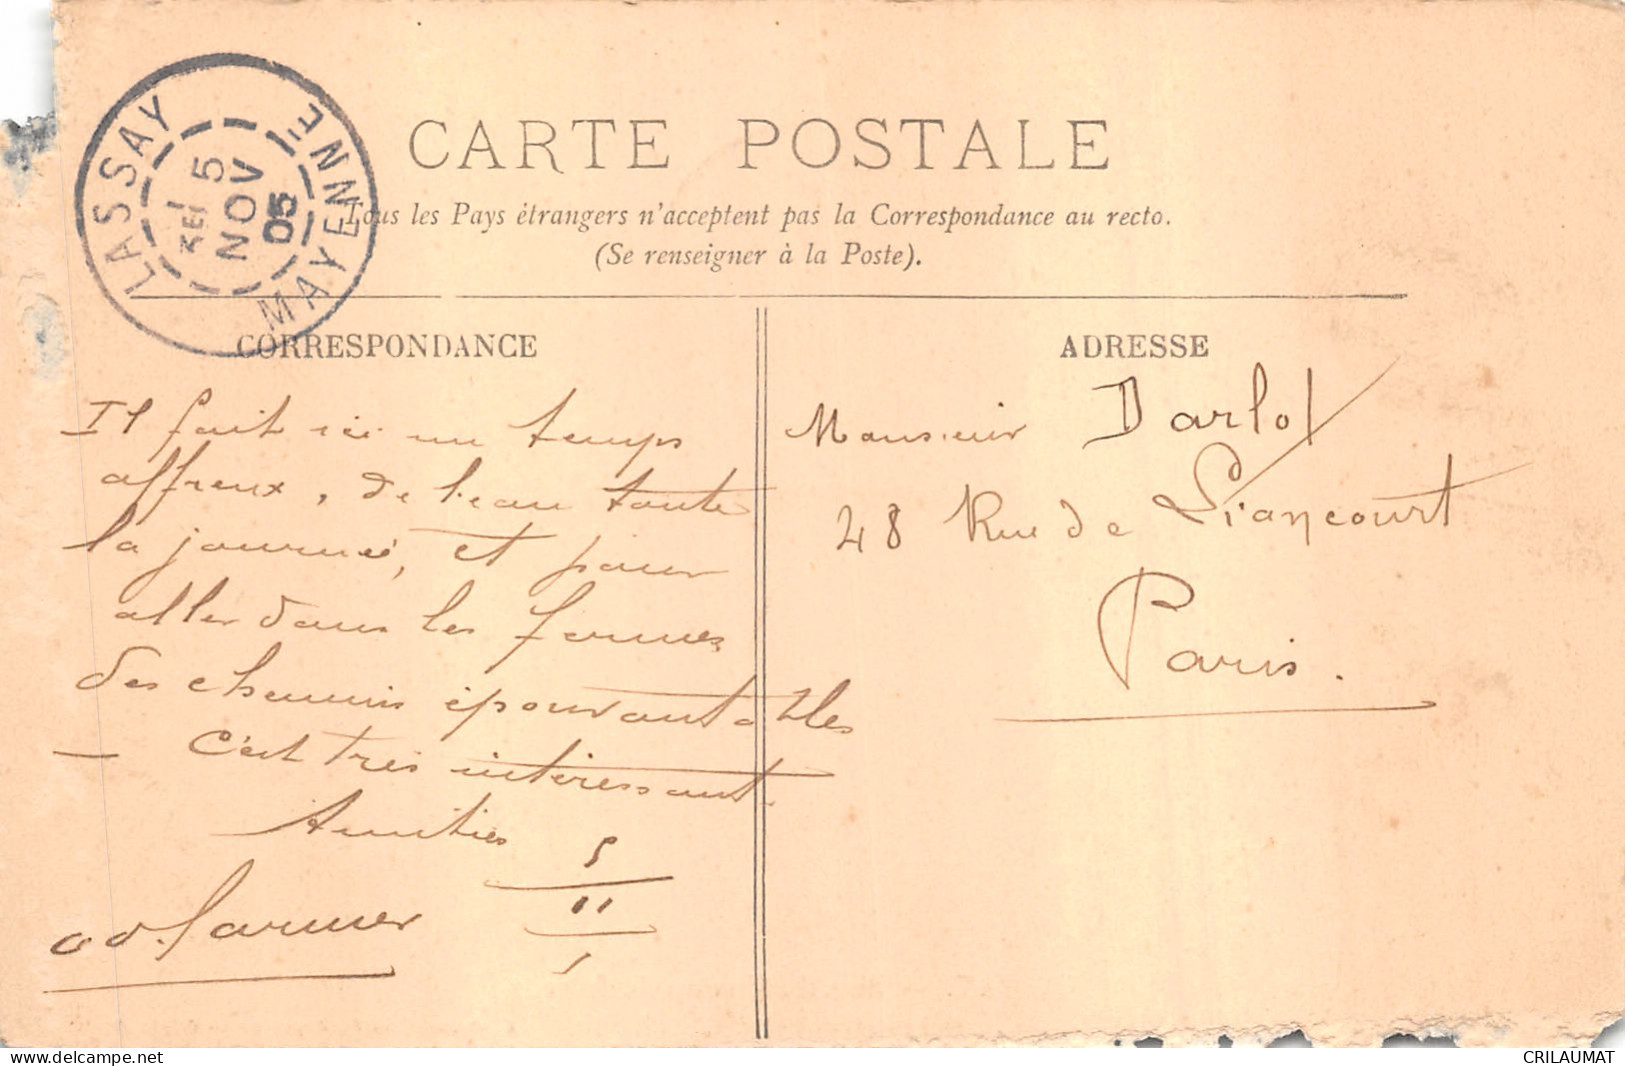 CARTE POSTALE
Tous les Pays étrangers n'acceptent pas la Correspondance au recto.
(Se renseigner à la Poste).
LASSAY
5
NOV
05
MAYENNE
CORRESPONDANCE
Il fait ici un temps
affreux, de l'eau toute
la journée, et pour
aller dans les fermes
des chemins épouvantables
— C'est très intéressant.
Amitiés
5
11
5
ADRESSE
Monsieur Darlot
48 Rue de Liancourt
Paris.
CRILAUMAT
www.delcampe.net